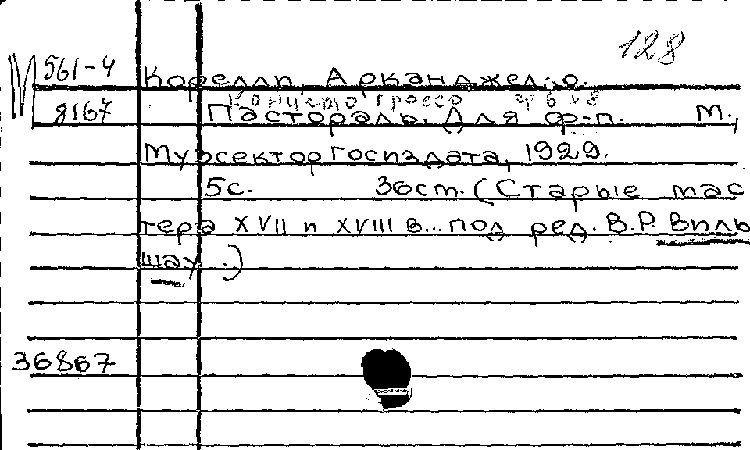 128
М 561-4 Корелли, Арканджело.
8167 Концерто гроссо op 6 №8
Пастораль. Для ф-п. М.,
Музсектор Госиздата, 1929.
5с. 36см. (Старые мас
тера XVII и XVIII в... под ред. В.Р. Виль
шау.)
36867